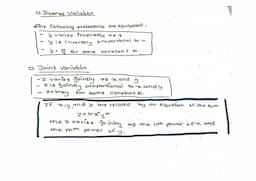 Inverse Variation
The following statements are equivalent.
- y varies inversely as x
- y is inversely proportional to x
- y = k/x for some constant k.
Joint Variation
- z varies jointly as x and y
- z is jointly proportional to x and y
- z = kxy for some constant k.
If x, y, and z are related by an equation of the form
z = kxⁿyᵐ
the z varies jointly as the nth power of x and
the mth power of y.